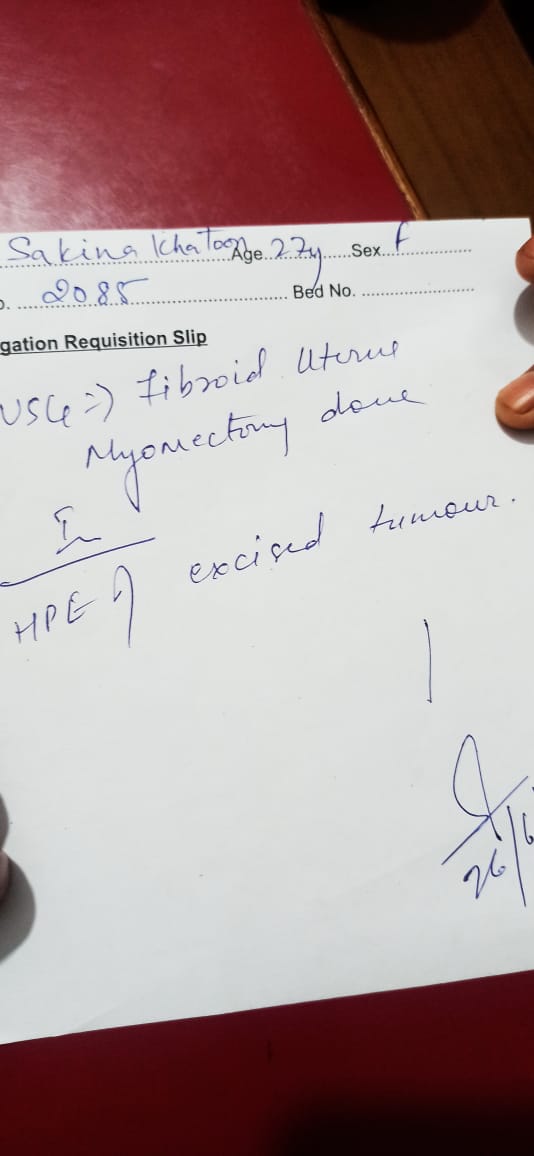 Sakina Khatoon Age..27y......Sex...F................
o. ....2085................................ Bed No. ............................
gation Requisition Slip
USG => Fibroid Uterus
Myomectomy done
HPE of excised tumour.
26/6